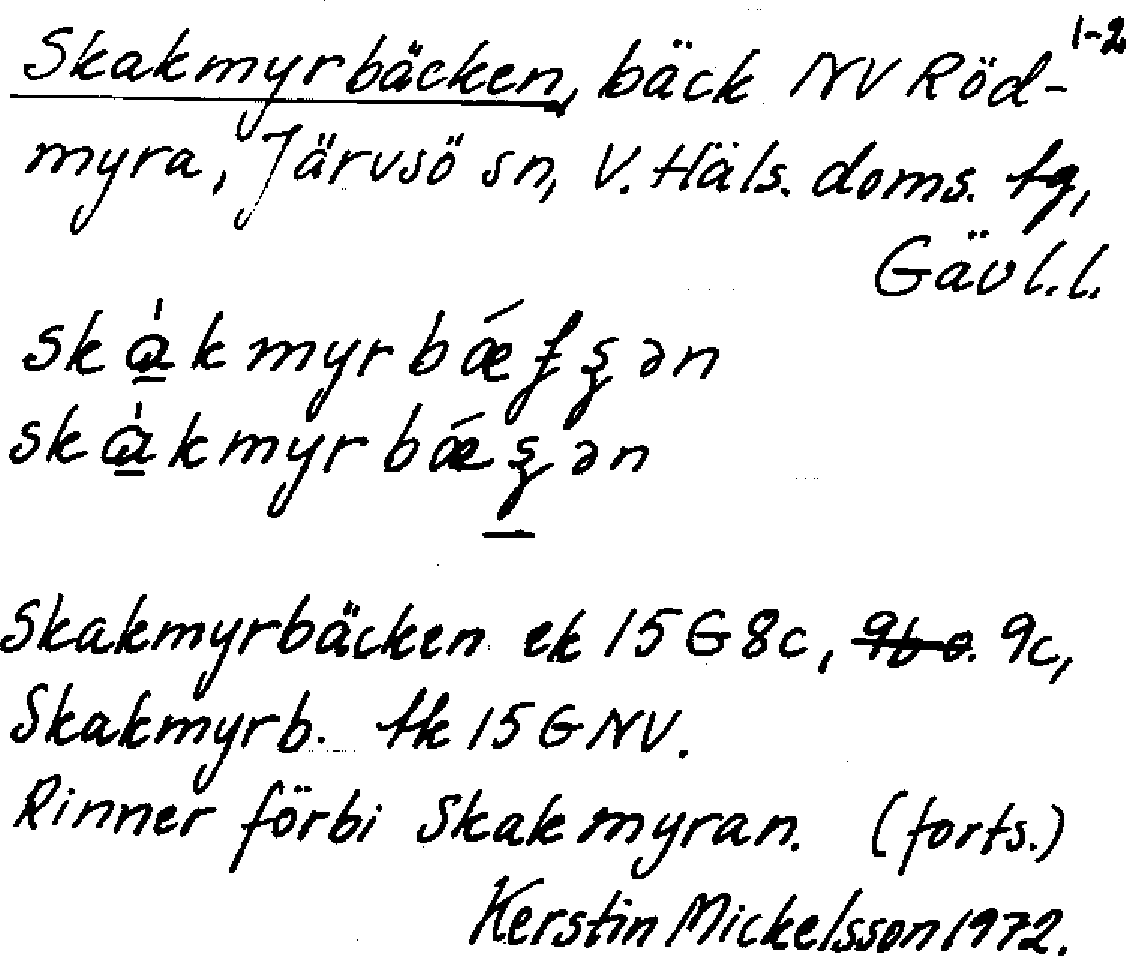 1-2
Skakmyrbäcken, bäck NV Röd-
myra, Järvsö sn, V. Häls. doms. tg,
Gävl.l.
Skakmyrbäcken ek 15G8c, 9c,
Skakmyrb. tk 15GNV.
Rinner förbi Skakmyran. (forts.)
Kerstin Mickelsson 1972.